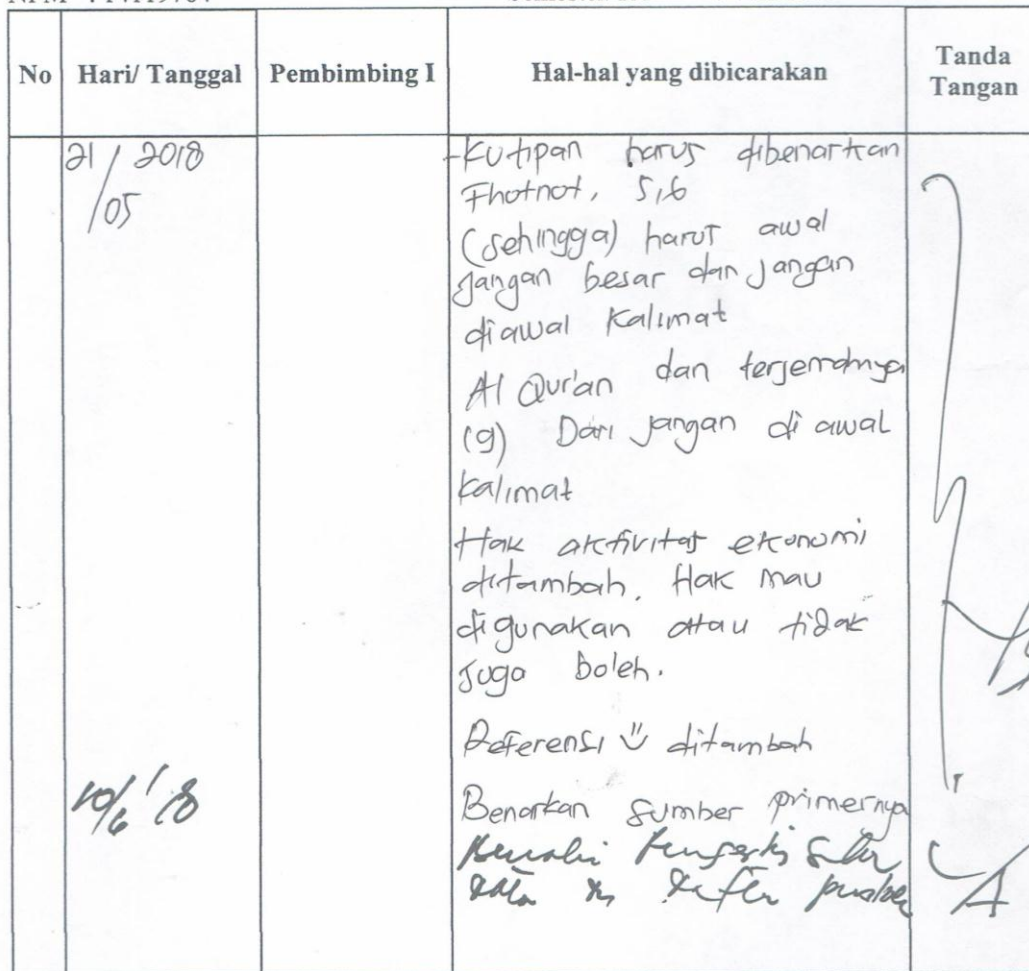 No Hari/ Tanggal Pembimbing I Hal-hal yang dibicarakan Tanda Tangan
21/05 2018
-Kutipan harus dibenarkan
Fhotnot, 5,6
(sehingga) harus awal
Jangan besar dan jangan
diawal kalimat
Al Qur'an dan terjemahnya
(9) Dari jangan di awal
kalimat
Hak aktivitas ekonomi
ditambah. Hak mau
digunakan atau tidak
juga boleh.
Referensi " ditambah
Benarkan sumber primernya